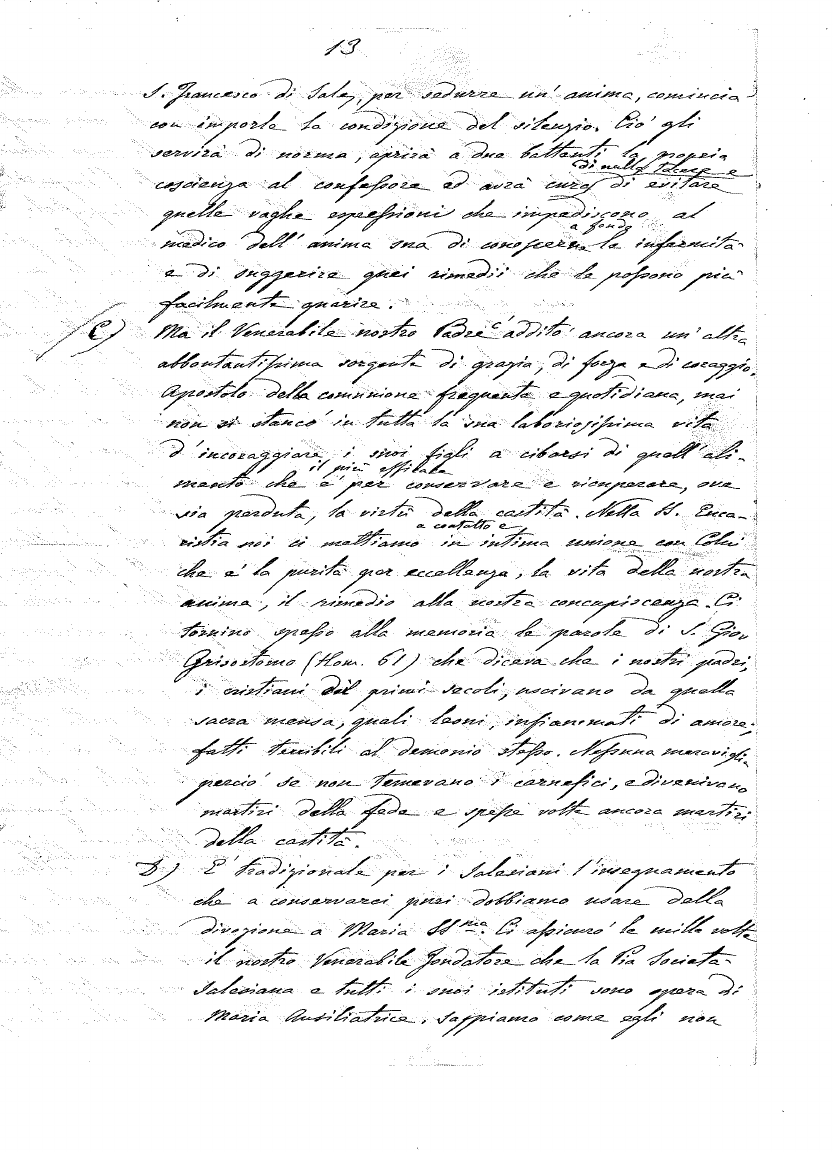 13
S. Francesco di Sales, per sedurre un' anima, comincia
con imporle la condizione del silenzio. Ciò gli
servirà di norma, aprirà a due battenti la propria
di nulla tacere e
coscienza al confessore ed avrà cura di evitare
quelle vaghe espressioni che impediscono al
a fondo
medico dell' anima sua di conoscerne le infermità
e di suggerire quei rimedii che le possono più
facilmente guarire.
C) Ma il Venerabile nostro Padre c' additò ancora un' altra
abbontantissima sorgente di grazia, di forza e di coraggio.
Apostolo della comunione frequente e quotidiana, mai
non si stancò in tutta la sua laboriosissima vita
d' incoraggiare i suoi figli a cibarsi di quell' ali-
il più efficace
mento che è per conservare e ricuperare, ove
sia perduta, la virtù della castità. Nella SS. Euca-
a contatto e
ristia noi ci mettiamo in intima unione con Colui
che è la purità per eccellenza, la vita della nostra
anima, il rimedio alla nostra concupiscenza. Ci
tornino spesso alla memoria le parole di S. Giov
Grisostomo (Hom. 61) che diceva che i nostri padri,
i cristiani dei primi secoli, uscivano da quella
sacra mensa, quali leoni, infiammati di amore,
fatti terribili al demonio stesso. Nessuna meraviglia
perciò se non temevano i carnefici, e divenivano
martiri della fede e spesse volte ancora martiri
della castità.
D) E' tradizionale per i Salesiani l' insegnamento
che a conservarci puri dobbiamo usare della
divozione a Maria SSma. Ci assicurò le mille volte
il nostro Venerabile Fondatore che la Pia Società
Salesiana e tutti i suoi istituti sono opera di
Maria Ausiliatrice. Sappiamo come egli non